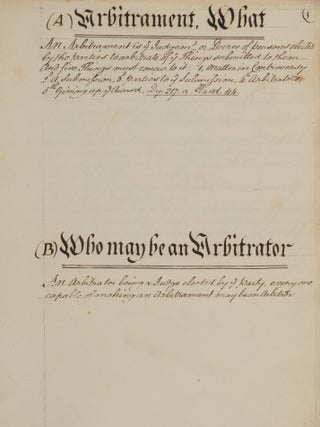 (A) Arbitrament, What
An Arbitrament is ye Judgemt. or Decree of persons elected
by the parties to arbitrate of ye Things submitted to them
And five Things must concur to it. 1, Matter in Controversy
2d. a Submission, 3. Parties to ye Submission, 4th. Arbitrators
5th. Giving up ye Award. Dy. 217. a
(B) Who may be an Arbitrator
An Arbitrator being a Judge elected by ye Party, every one
capable of making an Arbitrament may be an Arbitor